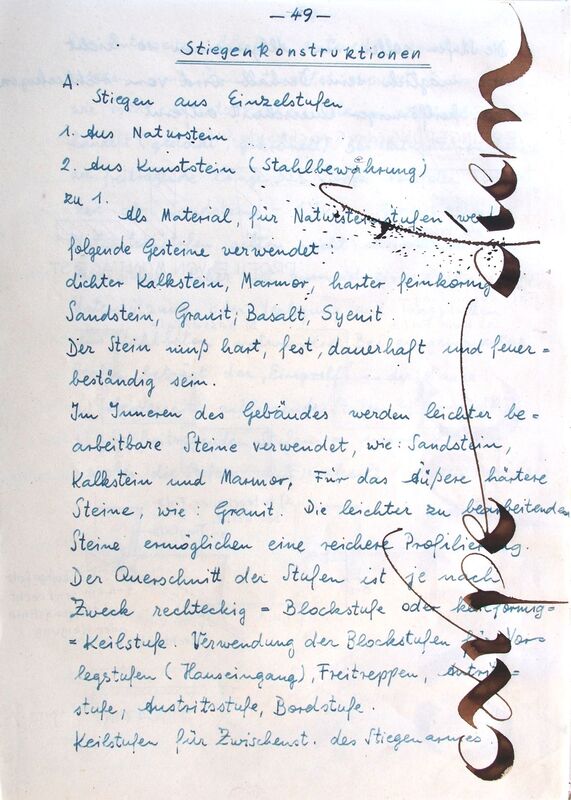 — 49 —
Stiegenkonstruktionen
A.
Stiegen aus Einzelstufen
1. Aus Naturstein.
2. Aus Kunststein (Stahlbewährung)
zu 1.
Als Material, für Natursteinstufen werd
folgende Gesteine verwendet:
dichter Kalkstein, Marmor, harter feinkörnig
Sandstein, Granit; Basalt, Syenit.
Der Stein muß hart, fest, dauerhaft und feuer=
beständig sein.
Im Inneren des Gebäudes werden leichter be=
arbeitbare Steine verwendet, wie: Sandstein,
Kalkstein und Marmor, Für das Äußere härtere
Steine, wie: Granit. Die leichter zu bearbeitenden
Steine ermöglichen eine reichere Profilierung.
Der Querschnitt der Stufen ist je nach
Zweck rechteckig = Blockstufe oder keilförmig=
= Keilstufe. Verwendung der Blockstufen für Vor=
legstufen (Hauseingang), Freitreppen, Antritt=
stufe, Austrittsstufe, Bordstufe.
Keilstufen für Zwischenst. des Stiegenarmes.
carpe diem